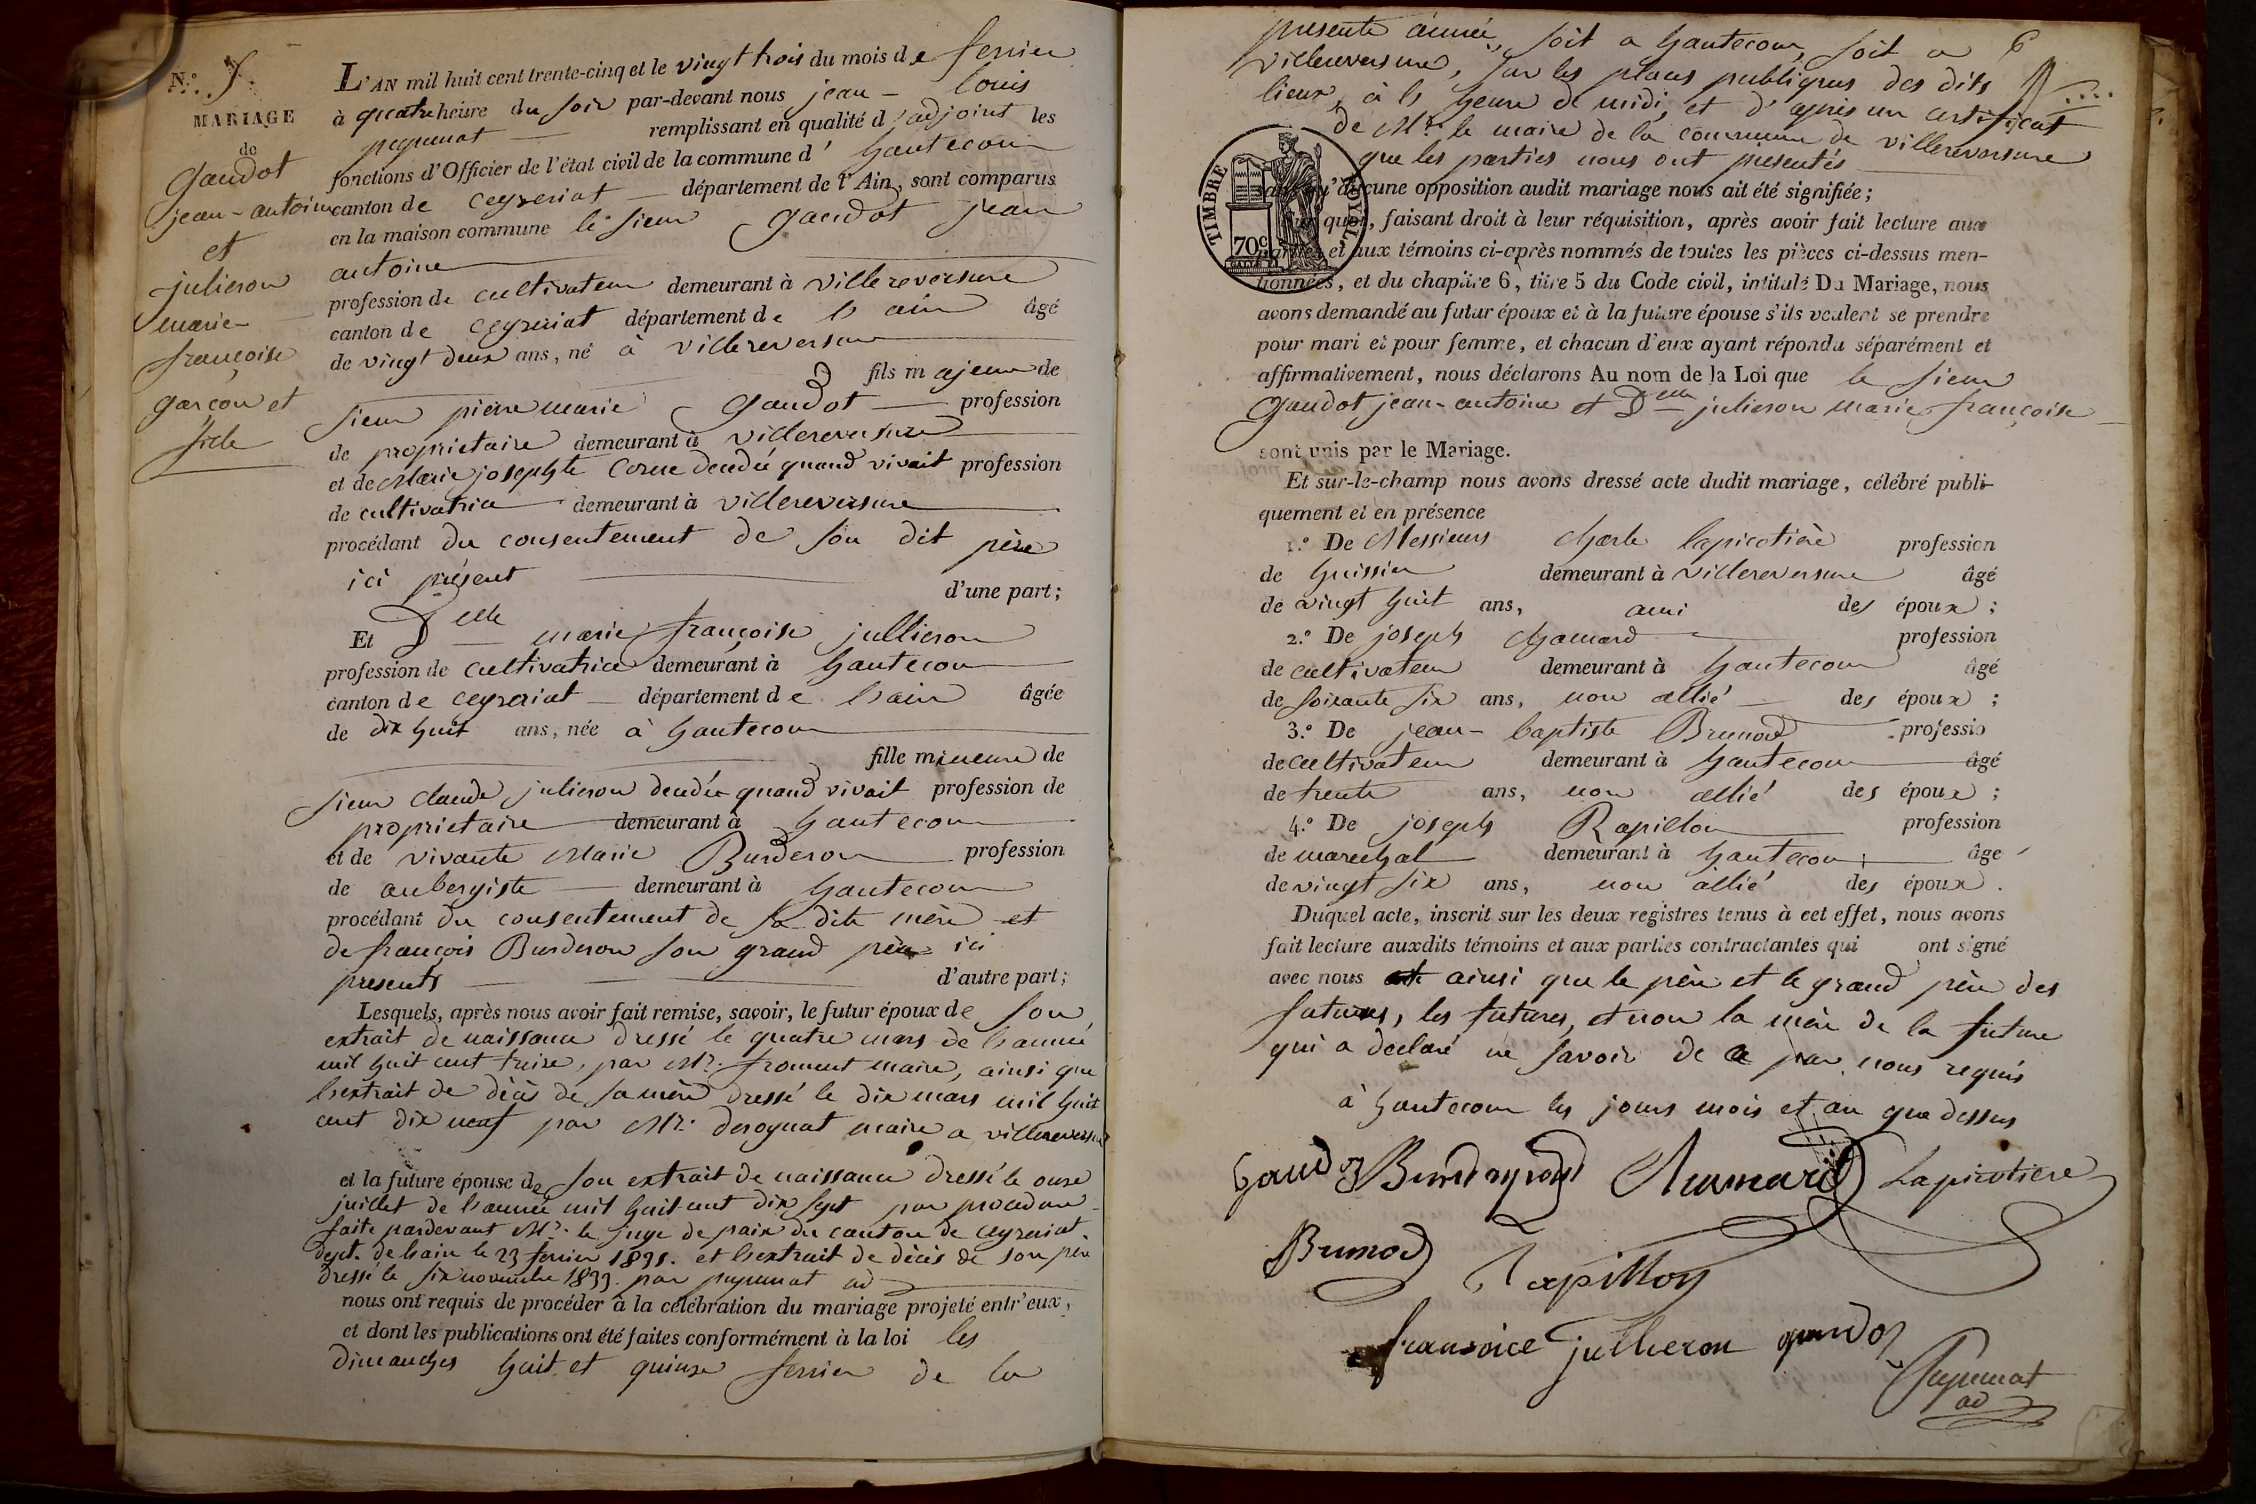 N.° 5.
MARIAGE
de
gaudot
jean-antoine
et
julieron
marie-
françoise
garçon et
fille
L'AN mil huit cent trente-cinq et le vingt trois du mois de fevrier
à quatre heure du soir par-devant nous jean - louis
pegumat remplissant en qualité d'adjoint les
fonctions d'Officier de l'état civil de la commune d' hautecour
canton de ceyzeriat département de l'Ain, sont comparus
en la maison commune le sieur gaudot jean
antoine
profession de cultivateur demeurant à villereversure
canton de ceyzeriat département de l ain âgé
de vingt deux ans, né à villereversure
fils majeur de
sieur pierre marie gaudot profession
de proprietaire demeurant à villereversure
et de Marie josephte Corne decedée quand vivait profession
de cultivatrice demeurant à villereversure
procédant du consentement de son dit père
ici présent
d'une part;
Et Delle marie françoise jullieron
profession de cultivatrice demeurant à hautecour
canton de ceyzeriat département de l'ain âgée
de dix huit ans, née à hautecour
fille mineure de
sieur claude julieron decedée quand vivait profession de
proprietaire demeurant à hautecour
et de vivante Marie Burderon profession
de aubergiste demeurant à hautecour
procédant du consentement de sa dite mère et
de françois Burderon son grand père ici
presents d'autre part;
Lesquels, après nous avoir fait remise, savoir, le futur époux de son
extrait de naissance dressé le quatre mars de l'année
mil huit cent treize, par Mr. froment maire, ainsi que
l'extrait de décès de sa mère dressé le dix mars mil huit
cent dix neuf par Mr. derognat maire a villereversure
et la future épouse de son extrait de naissance dressé le onze
juillet de l'année mil huit cent dix sept par procedure
faite pardevant Mr. le juge de paix du canton de ceyzeriat
dept. de l'ain le 23 fevrier 1835. et l'extrait de décès de son père
dressé le six novembre 1833. par pegumat ad
nous ont requis de procéder à la célébration du mariage projeté entr'eux,
et dont les publications ont été faites conformément à la loi les
dimanches huit et quinze fevrier de la
6
presente année, soit a hautecour, soit a
villereversure, sur les places publiques des dits
lieux, à l'heure de midi, et d'après un certificat
de Mr. le maire de la commune de villereversure
que les parties nous ont présentés
TIMBRE ROYAL
70c
sans qu'aucune opposition audit mariage nous ait été signifiée;
Sur quoi, faisant droit à leur réquisition, après avoir fait lecture aux
parties et aux témoins ci-après nommés de toutes les pièces ci-dessus men-
tionnées, et du chapitre 6, titre 5 du Code civil, intitulé Du Mariage, nous
avons demandé au futur époux et à la future épouse s'ils veulent se prendre
pour mari et pour femme, et chacun d'eux ayant répondu séparément et
affirmativement, nous déclarons Au nom de la Loi que le sieur
gaudot jean-antoine et Delle julieron marie françoise
sont unis par le Mariage.
Et sur-le-champ nous avons dressé acte dudit mariage, célébré publi-
quement et en présence
1.° De Messieurs charle lapicotière profession
de huissier demeurant à villereversure âgé
de vingt huit ans, ami des époux;
2.° De joseph chamard profession
de cultivateur demeurant à hautecour âgé
de soixante six ans, non allié des époux;
3.° De jean-baptiste Brunod professio
de cultivateur demeurant à hautecour âgé
de trente ans, non allié des époux;
4.° De joseph Rapillon profession
de marechal demeurant à hautecour; âge
de vingt six ans, non allié des époux.
Duquel acte, inscrit sur les deux registres tenus à cet effet, nous avons
fait lecture auxdits témoins et aux parties contractantes qui ont signé
avec nous ainsi que le père et le grand père des
futures, les futures, et non la mère de la future
qui a declaré ne savoir de ce par nous requis
à hautecour les jours mois et an que dessus
gaudoz Chamard Lapicotiere
Brunod Rapillon
fransoice jullieron gaudoz
Pegumat
ad